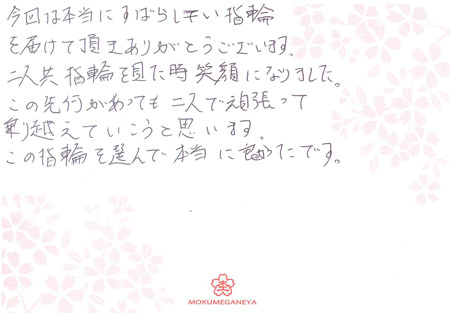 今回は本当にすばらしい指輪
を届けて頂きありがとうございます。
二人共指輪を見た時笑顔になりました。
この先何があっても二人で頑張って
乗り越えていこうと思います。
この指輪を選んで本当に良かったです。
MOKUMEGANEYA